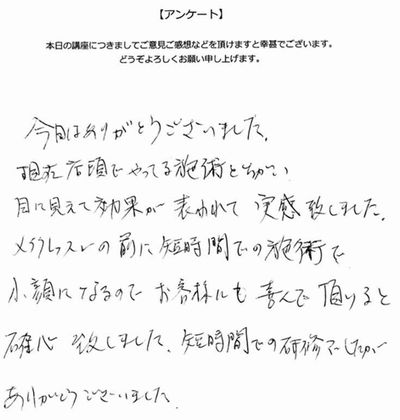 【アンケート】
本日の講座につきましてご意見ご感想などを頂けますと幸甚でございます。
どうぞよろしくお願い申し上げます。
今日はありがとうございました。
現在店頭でやってる施術とちがい
目に見えて効果が表われて実感致しました。
の前に短時間での施術で
小顔になるのでお客様にも喜んで頂けると
確心致しました。短時間での研修でしたが
ありがとうございました。